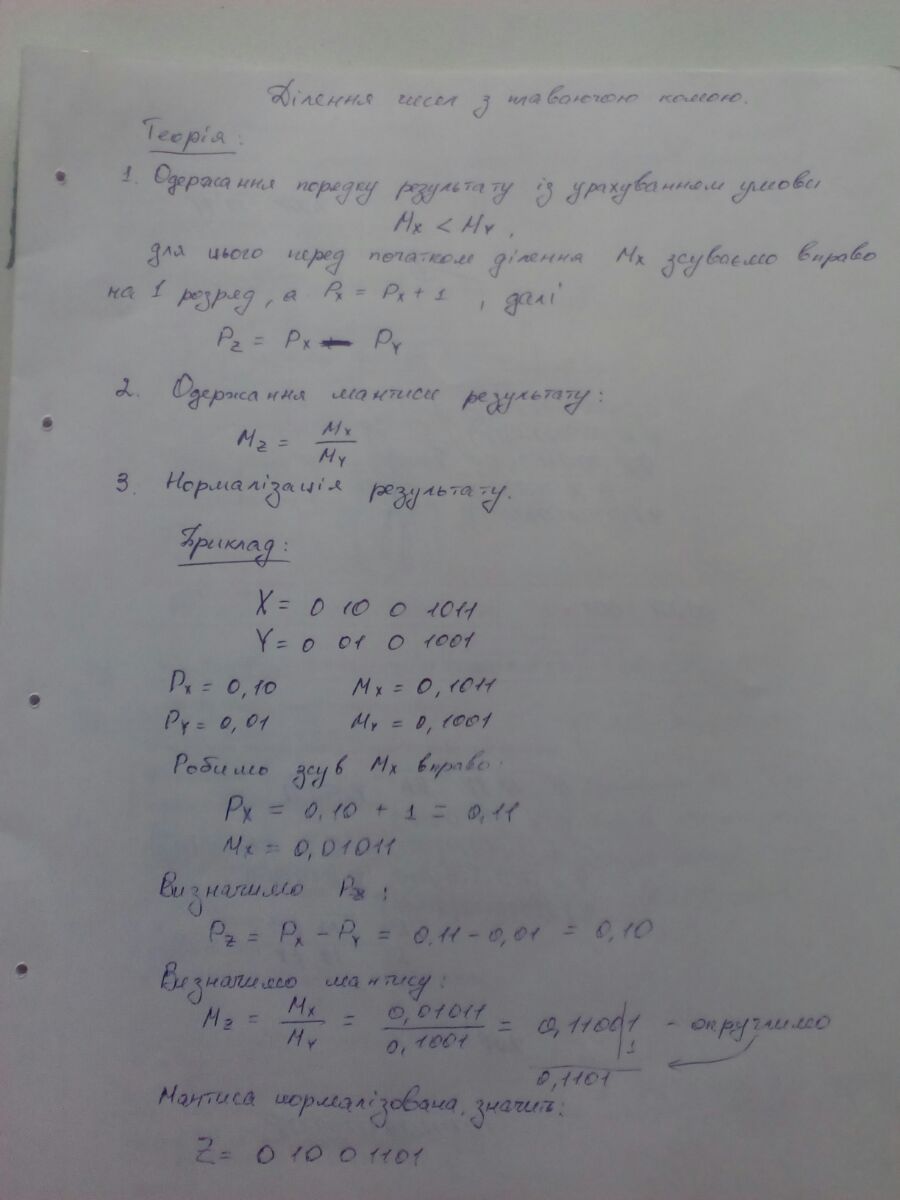 Ділення чисел з плаваючою комою.
Теорія:
1. Одержання порядку результату із урахуванням умови
Mx < My,
для цього перед початком ділення Mx зсуваємо вправо
на 1 розряд, а Px = Px + 1, далі
Pz = Px - Py
2. Одержання мантиси результату:
Mz = Mx / My
3. Нормалізація результату.
Приклад:
X = 0 10 0 1011
Y = 0 01 0 1001
Px = 0,10 Mx = 0,1011
Py = 0,01 My = 0,1001
Робимо зсув Mx вправо.
Px = 0,10 + 1 = 0,11
Mx = 0,01011
Визначимо Pz:
Pz = Px - Py = 0,11 - 0,01 = 0,10
Визначимо мантису:
Mz = Mx / My = 0,01011 / 0,1001 = 0,1100|1 - округлимо
1
0,1101
Мантиса нормалізована, значить:
Z = 0 10 0 1101